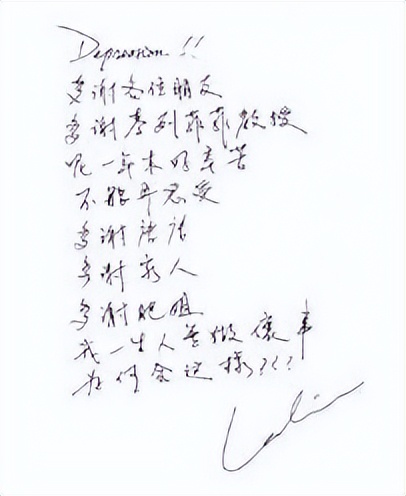 Depression!!
多谢各位朋友
多谢麦列菲菲教授
呢一年来好辛苦
不能再忍受
多谢唐唐
多谢家人
多谢肥姐
我一生人无做壞事
为何会这樣???
Leslie